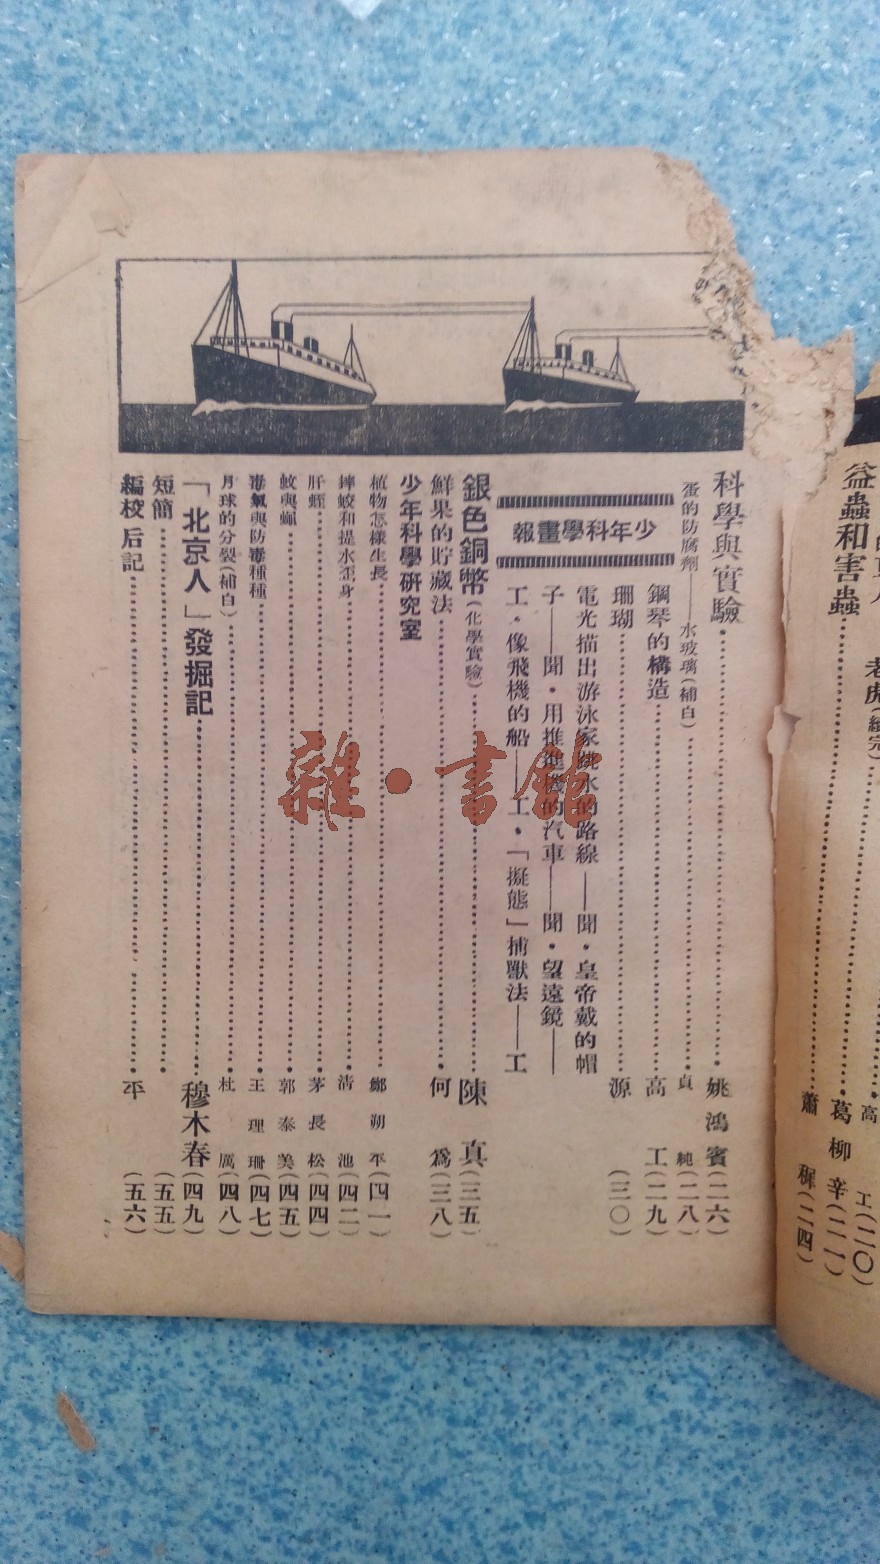 益蟲和害蟲……葛柳辛(二一)
蕭 穉(二四)
科學與實驗……姚鴻賓(二六)
蛋的防腐劑——水玻璃(補白)……貞純(二八)
鋼琴的構造……高 工(二九)
珊瑚……源(三〇)
少年科學畫報
電光描出游泳家跳水的路線——聞·皇帝戴的帽
子——聞·用推進機的汽車——聞·望遠鏡——
工·像飛機的船——工·「擬態」捕獸法——工
銀色銅幣(化學實驗)……陳 真(三五)
鮮果的貯藏法……何 爲(三八)
少年科學研究室
植物怎樣生長……鄭朔平(四一)
摔蛟和提水歪身……清 池(四二)
肝蛭……茅長松(四四)
蚊與蠅……郭泰美(四五)
毒氣與防毒種種……王理珊(四七)
月球的分裂(補白)……杜 厲(四八)
「北京人」發掘記……穆木春(四九)
短簡……(五五)
編校后記……平(五六)
雜·書館